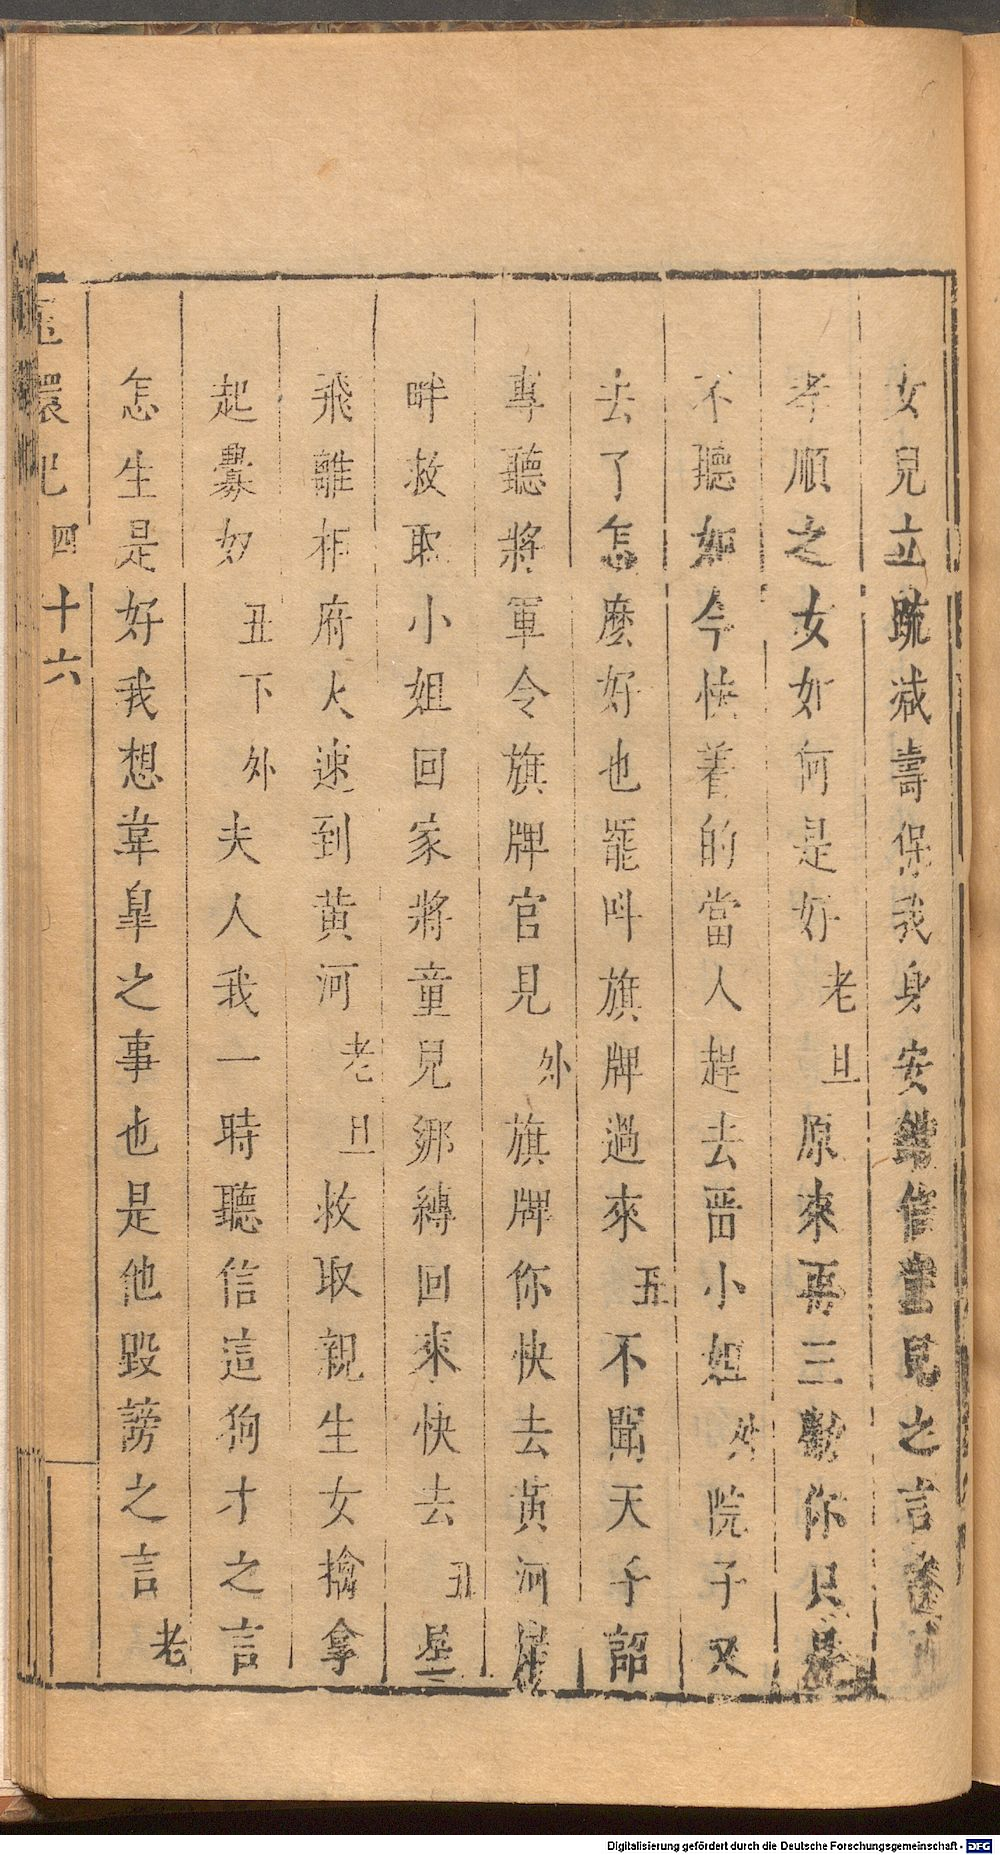 女兒立䟽減壽保我身安錯信童兒之言
孝順之女如何是好老旦原來再三勸你只是
不聽如今快着的當人趕去畱小姐外院子又
去了怎麼好也罷呌旗牌過來丑不聞天子詔
專聽將軍令旗牌官見外旗牌你快去黃河
畔救取小姐回家將童兒綁縛回來快去丑
飛離相府火速到黃河老旦救取親生女擒拿
起釁奴丑下外夫人我一時聽信這狗才之言
怎生是好我想韋皐之事也是他毀謗之言老
環記四十六
Digitalisierung gefördert durch die Deutsche Forschungsgemeinschaft - DFG